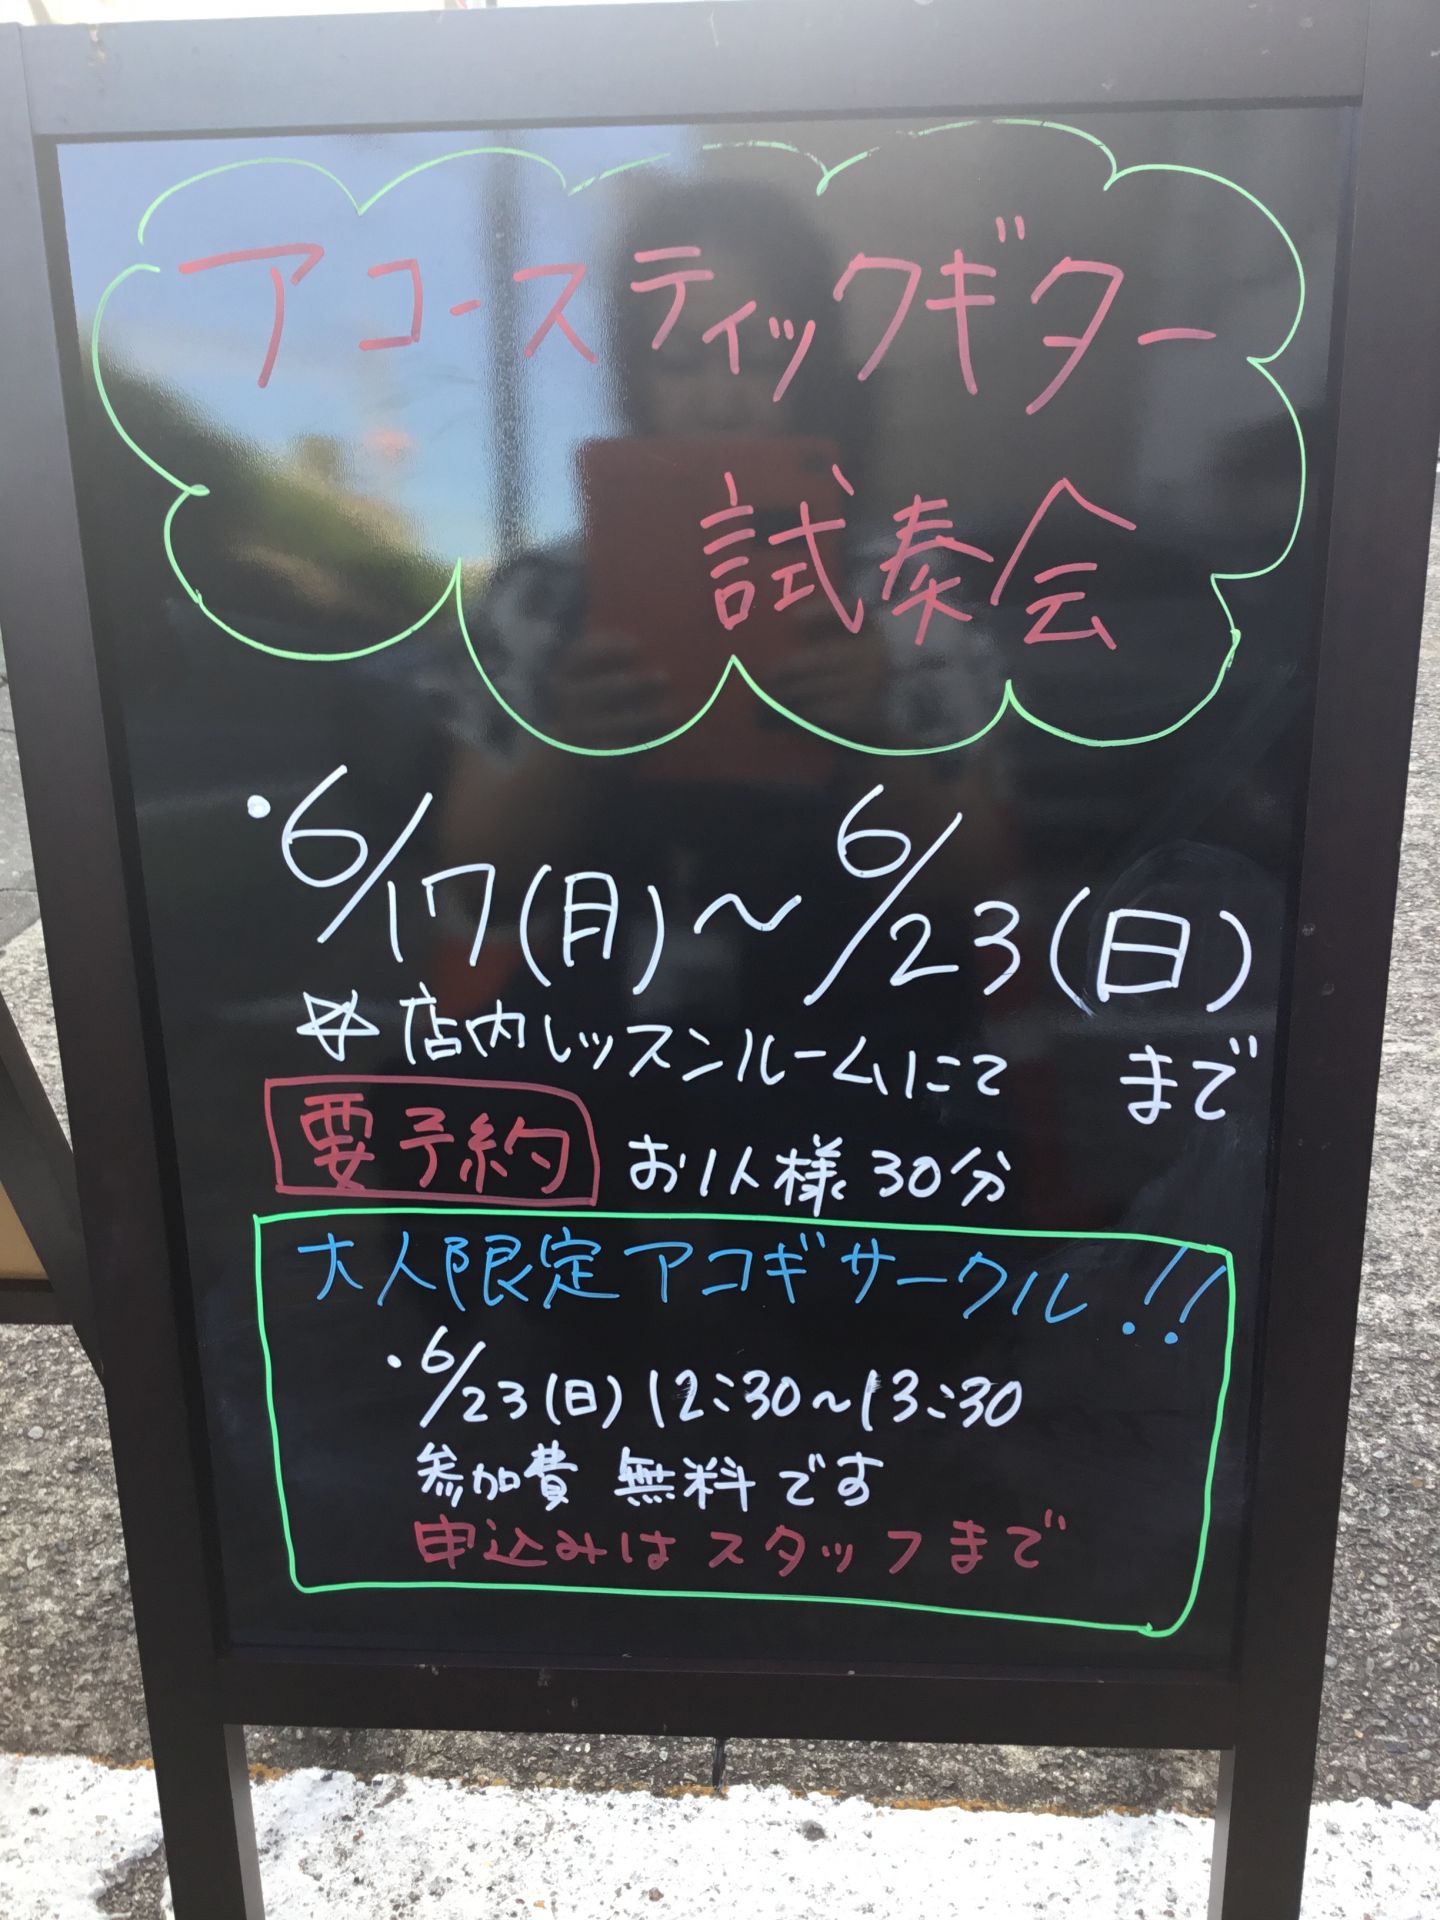 アコースティックギター
試奏会
・6/17(月)〜6/23(日)
☆店内レッスンルームにて まで
要予約 お1人様30分
大人限定アコギサークル!!
・6/23(日)12:30〜13:30
参加費 無料です
申込みはスタッフまで